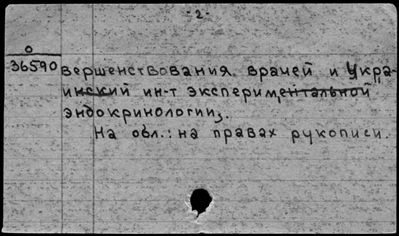 - 2 -
0
36590 вершенствования врачей и Укра-
инский ин-т экспериментальной
эндокринологии.
На обл.: на правах рукописи.